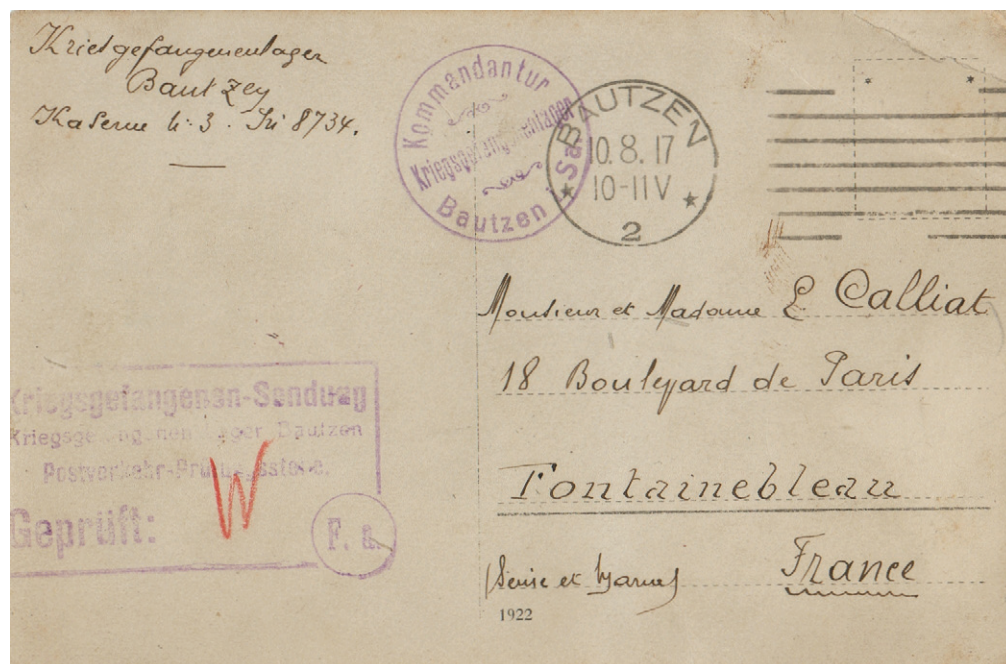 Kriegsgefangenenlager
Bautzen
Kaserne
8734.
Kommandantur
Kriegsgefangenenlager
Bautzen Sa.
BAUTZEN
10. 8. 17
10-11 V
2
Monsieur et Madame E Calliat
18 Boulevard de Paris
Fontainebleau
(Seine et Marne)
France
Kriegsgefangenen-Sendung
Kriegsgefangenenlager Bautzen
Postverkehr-Prüfungsstelle.
Geprüft:
W
F. a.
1922